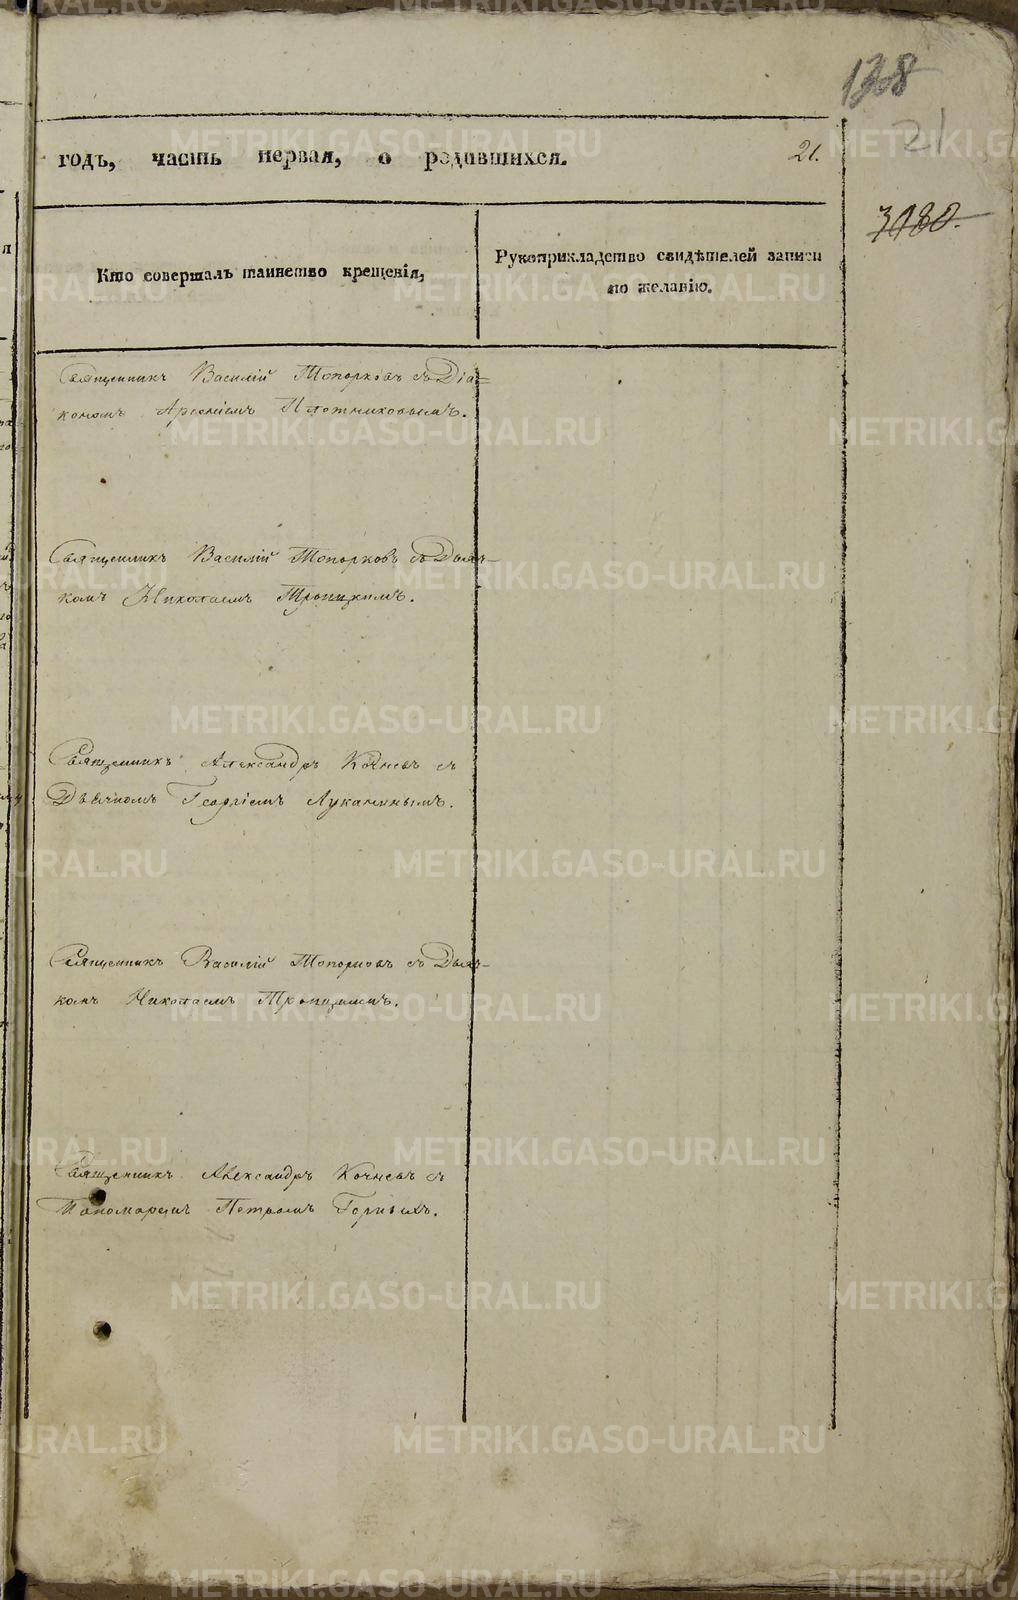 138
21
годъ, часть первая, о родившихся.
21.
3180.
Кто совершалъ таинство крещенія,
Рукоприкладство свидѣтелей записи
по желанію.
Священникъ Василій Топорковъ съ Діа-
кономъ Арсеніемъ Плотниковымъ.
Священникъ Василій Топорковъ съ Дьяч-
комъ Николаемъ Троицкимъ.
Священникъ Александръ Кочневъ съ
Дьячкомъ Георгіемъ Луканинымъ.
Священникъ Василій Топорковъ съ Дьяч-
комъ Николаемъ Троицкимъ.
Священникъ Александръ Кочневъ съ
Пономаремъ Петромъ Горныхъ.
METRIKI.GASO-URAL.RU